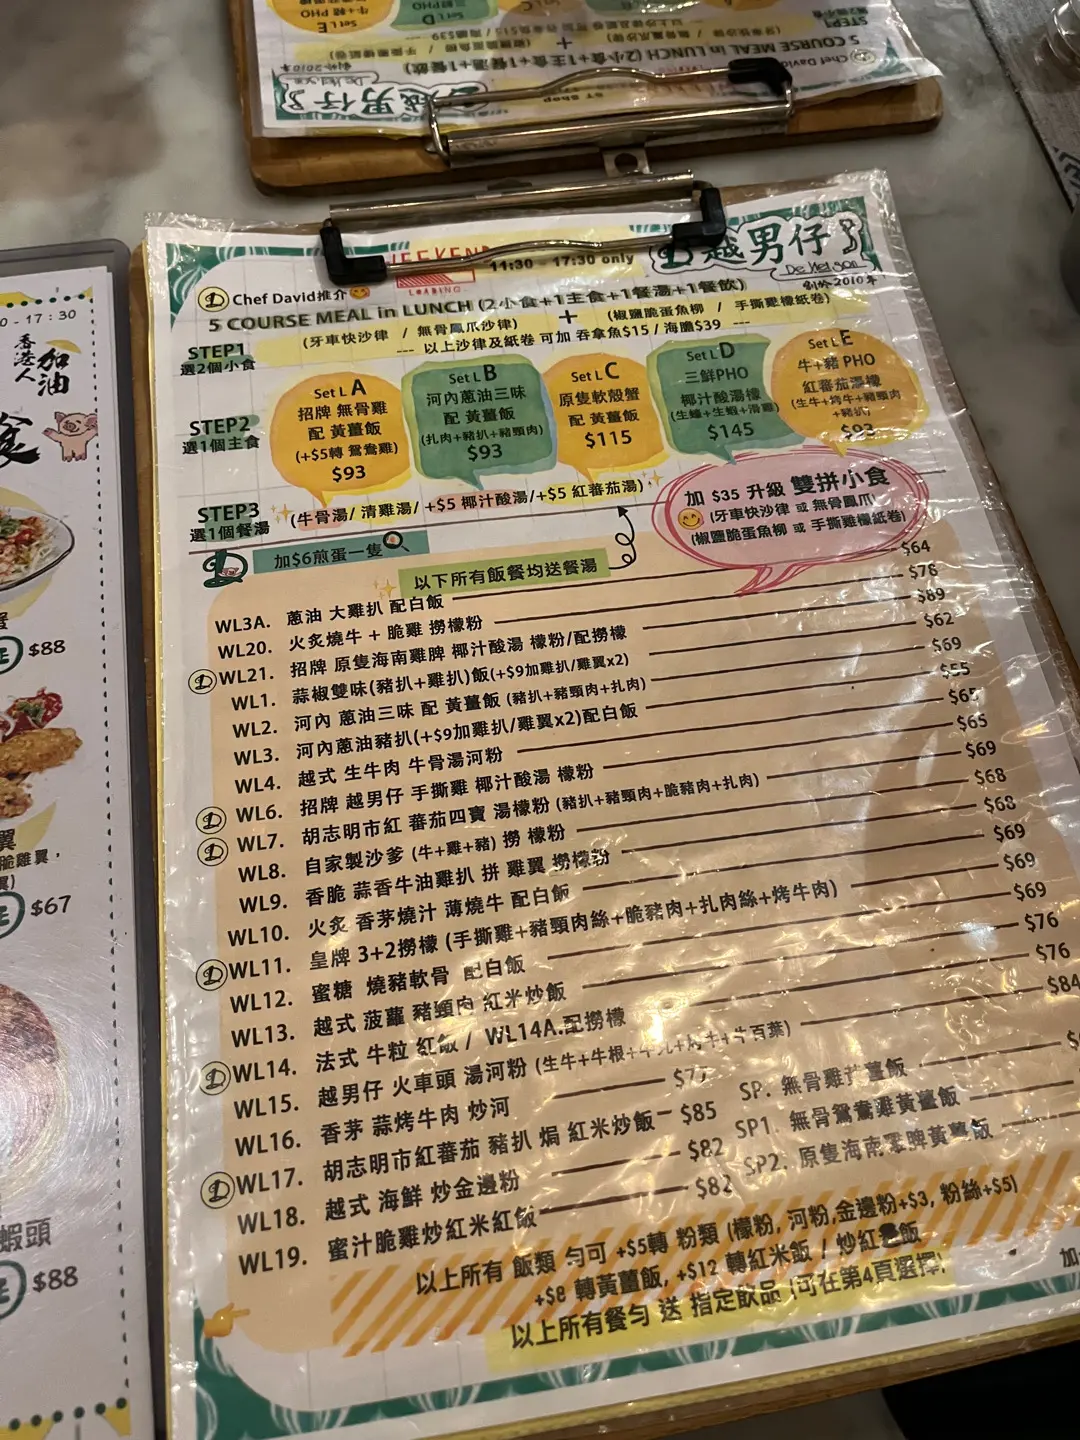 WEEKEND
LOADING..
11:30 - 17:30 only
越男仔
De Viet Son
創於2010年
Chef David推介
5 COURSE MEAL in LUNCH (2小食+1主食+1餐湯+1餐飲)
STEP1
選2個小食
(牙車快沙律 / 無骨鳳爪沙律) + (椒鹽脆蛋魚柳 / 手撕雞檬紙卷)
--- 以上沙律及紙卷 可加 吞拿魚$15 / 海膽$39 ---
STEP2
選1個主食
Set L A
招牌 無骨雞
配 黃薑飯
(+$5轉 鴛鴦雞)
$93
Set L B
河內蔥油三味
配 黃薑飯
(扎肉+豬扒+豬頸肉)
$93
Set L C
原隻軟殼蟹
配 黃薑飯
$115
Set L D
三鮮PHO
椰汁酸湯檬
$145
Set L E
牛+豬 PHO
紅蕃茄湯檬
(生牛+烤牛+豬頸肉
+豬扒)
$93
STEP3
選1個餐湯
(牛骨湯/ 清雞湯/ +$5 椰汁酸湯/+$5 紅蕃茄湯)
加 $35 升級 雙拼小食
(牙車快沙律 或 無骨鳳爪)
(椒鹽脆蛋魚柳 或 手撕雞檬紙卷)
加$6煎蛋一隻
以下所有飯餐均送餐湯
WL3A. 蔥油 大雞扒 配白飯 $64
WL20. 火炙燒牛 + 脆雞 撈檬粉 $78
WL21. 招牌 原隻海南雞髀 椰汁酸湯 檬粉/配撈檬 $89
WL1. 蒜椒雙味(豬扒+雞扒)飯(+$9加雞扒/雞翼x2) $62
WL2. 河內 蔥油三味 配 黃薑飯 (豬扒+豬頸肉+扎肉) $69
WL3. 河內蔥油豬扒(+$9加雞扒/雞翼x2)配白飯 $55
WL4. 越式 生牛肉 牛骨湯河粉 $65
WL6. 招牌 越男仔 手撕雞 椰汁酸湯 檬粉 $65
WL7. 胡志明市紅 蕃茄四寶 湯檬粉 (豬扒+豬頸肉+脆豬肉+扎肉) $69
WL8. 自家製沙爹 (牛+雞+豬) 撈 檬粉 $68
WL9. 香脆 蒜香牛油雞扒 拼 雞翼 撈檬粉 $68
WL10. 火炙 香茅燒汁 薄燒牛 配白飯 $69
WL11. 皇牌 3+2撈檬 (手撕雞+豬頸肉絲+脆豬肉+扎肉絲+烤牛肉) $69
WL12. 蜜糖 燒豬軟骨 配白飯 $69
WL13. 越式 菠蘿 豬頸肉 紅米炒飯 $76
WL14. 法式 牛粒 紅飯 / WL14A.配撈檬 $76
WL15. 越男仔 火車頭 湯河粉 $84
WL16. 香茅 蒜烤牛肉 炒河 $77
WL17. 胡志明市紅蕃茄 豬扒 焗 紅米炒飯 $85
WL18. 越式 海鮮 炒金邊粉 $82
WL19. 蜜汁脆雞炒紅米紅飯 $82
SP. 無骨雞黃薑飯
SP1. 無骨鴛鴦雞黃薑飯
SP2. 原隻海南髀黃薑飯
以上所有 飯類 勻可 +$5轉 粉類 (檬粉, 河粉,金邊粉+$3, 粉絲+$5)
+$8 轉黃薑飯, +$12 轉紅米飯 / 炒紅飯
以上所有餐勻 送 指定飲品 (可在第4頁選擇)
加
17:30
香港人
加油
食
$88
翼
脆雞翼，
$67
蝦頭
$88
Chef David
5 COURSE MEAL in LUNCH (2小食+1主食+1餐湯+1餐飲)
STEP1
越男仔
創於2010年
Set L D
Set L E
牛+豬 PHO
三鮮PHO